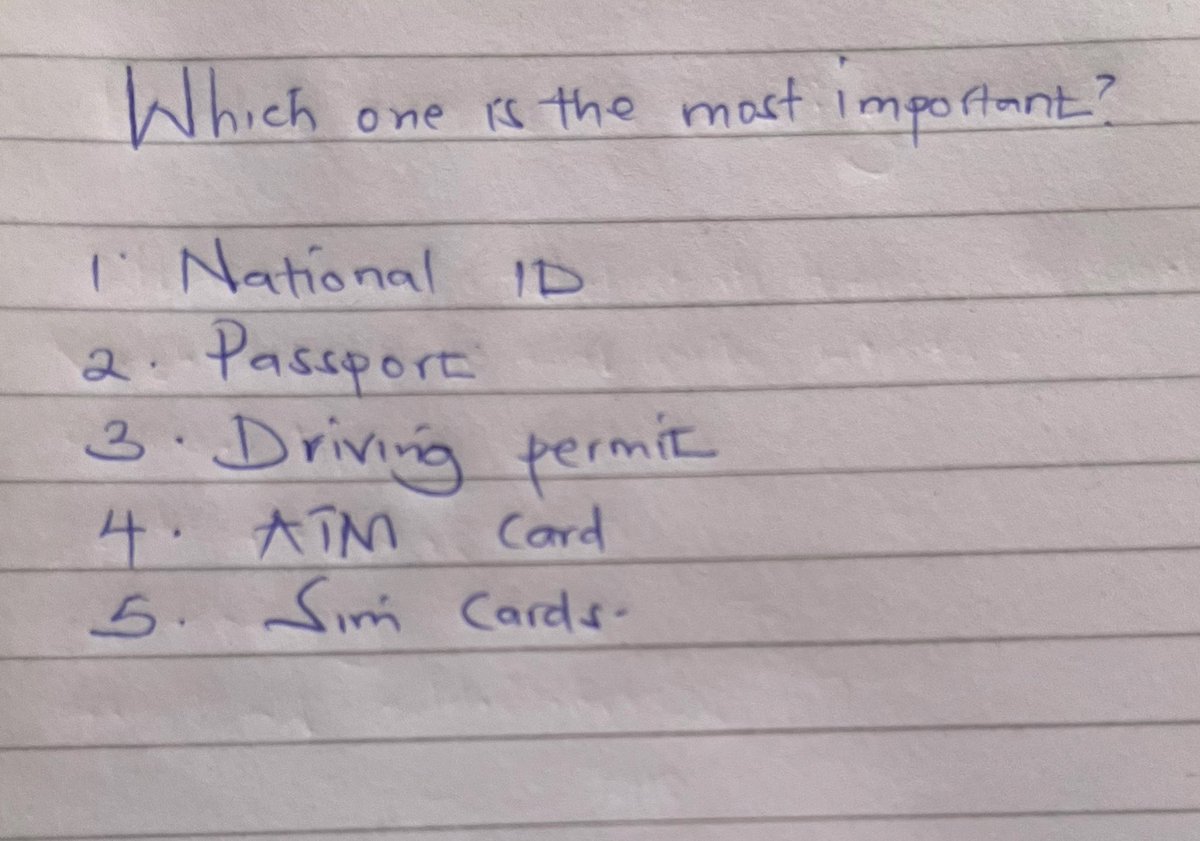 Which one is the most important?
1. National ID
2. Passport
3. Driving permit
4. ATM Card
5. Sim Cards.